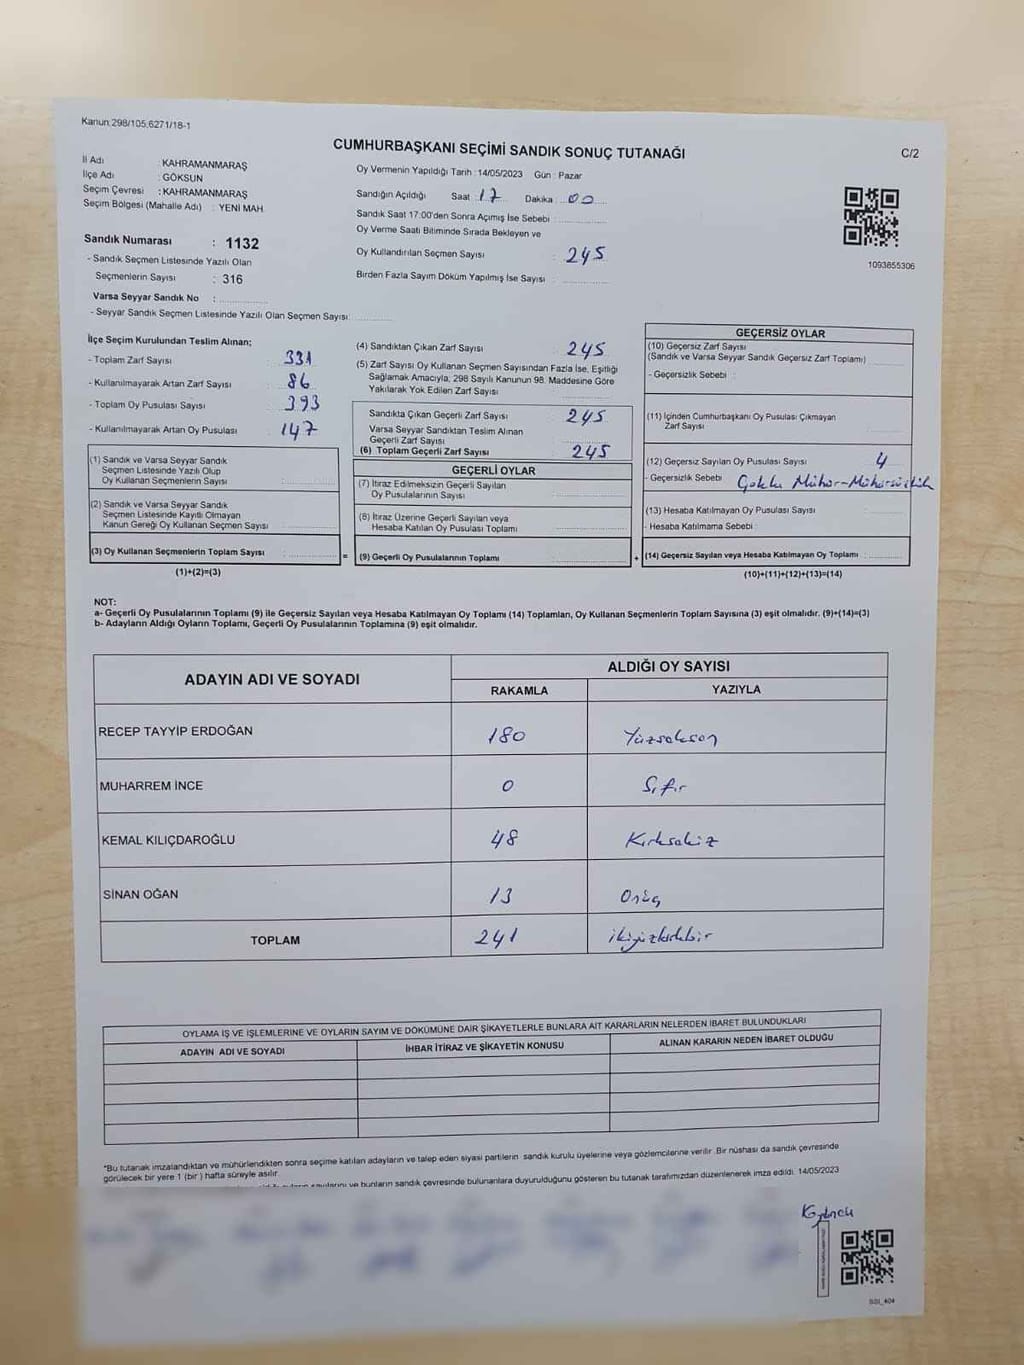 Kanun:298/105,6271/18-1
CUMHURBAŞKANI SEÇİMİ SANDIK SONUÇ TUTANAĞI
C/2
İl Adı : KAHRAMANMARAŞ
İlçe Adı : GÖKSUN
Seçim Çevresi : KAHRAMANMARAŞ
Seçim Bölgesi (Mahalle Adı) : YENİ MAH.
Sandık Numarası : 1132
- Sandık Seçmen Listesinde Yazılı Olan
Seçmenlerin Sayısı : 316
Varsa Seyyar Sandık No :
- Seyyar Sandık Seçmen Listesinde Yazılı Olan Seçmen Sayısı:
Oy Vermenin Yapıldığı Tarih : 14/05/2023 Gün : Pazar
Sandığın Açıldığı Saat : 17 Dakika : 00
Sandık Saat 17:00'den Sonra Açımış İse Sebebi :
Oy Verme Saati Bitiminde Sırada Bekleyen ve
Oy Kullandırılan Seçmen Sayısı : 245
Birden Fazla Sayım Döküm Yapılmış İse Sayısı :
1093855306
İlçe Seçim Kurulundan Teslim Alınan;
- Toplam Zarf Sayısı : 331
- Kullanılmayarak Artan Zarf Sayısı : 86
- Toplam Oy Pusulası Sayısı : 393
- Kullanılmayarak Artan Oy Pusulası : 147
(1) Sandık ve Varsa Seyyar Sandık
Seçmen Listesinde Yazılı Olup
Oy Kullanan Seçmenlerin Sayısı :
(2) Sandık ve Varsa Seyyar Sandık
Seçmen Listesinde Kayıtlı Olmayan
Kanun Gereği Oy Kullanan Seçmen Sayısı :
(3) Oy Kullanan Seçmenlerin Toplam Sayısı :
(1)+(2)=(3)
(4) Sandıktan Çıkan Zarf Sayısı : 245
(5) Zarf Sayısı Oy Kullanan Seçmen Sayısından Fazla İse, Eşitliği
Sağlamak Amacıyla, 298 Sayılı Kanunun 98. Maddesine Göre
Yakılarak Yok Edilen Zarf Sayısı
Sandıkta Çıkan Geçerli Zarf Sayısı : 245
Varsa Seyyar Sandıktan Teslim Alınan
Geçerli Zarf Sayısı
(6) Toplam Geçerli Zarf Sayısı : 245
GEÇERLİ OYLAR
(7) İtiraz Edilmeksizin Geçerli Sayılan
Oy Pusulalarının Sayısı :
(8) İtiraz Üzerine Geçerli Sayılan veya
Hesaba Katılan Oy Pusulası Toplamı :
= (9) Geçerli Oy Pusulalarının Toplamı :
GEÇERSİZ OYLAR
(10) Geçersiz Zarf Sayısı
(Sandık ve Varsa Seyyar Sandık Geçersiz Zarf Toplamı)
- Geçersizlik Sebebi :
(11) İçinden Cumhurbaşkanı Oy Pusulası Çıkmayan
Zarf Sayısı
(12) Geçersiz Sayılan Oy Pusulası Sayısı : 4
- Geçersizlik Sebebi :
(13) Hesaba Katılmayan Oy Pusulası Sayısı :
- Hesaba Katılmama Sebebi :
+ (14) Geçersiz Sayılan veya Hesaba Katılmayan Oy Toplamı :
(10)+(11)+(12)+(13)=(14)
NOT:
a- Geçerli Oy Pusulalarının Toplamı (9) ile Geçersiz Sayılan veya Hesaba Katılmayan Oy Toplamı (14) Toplamları, Oy Kullanan Seçmenlerin Toplam Sayısına (3) eşit olmalıdır. (9)+(14)=(3)
b- Adayların Aldığı Oyların Toplamı, Geçerli Oy Pusulalarının Toplamına (9) eşit olmalıdır.
ADAYIN ADI VE SOYADI
ALDIĞI OY SAYISI
RAKAMLA YAZIYLA
RECEP TAYYİP ERDOĞAN 180 Yüzseksen
MUHARREM İNCE 0 Sıfır
KEMAL KILIÇDAROĞLU 48 Kırksekiz
SİNAN OĞAN 13 Onüç
TOPLAM 241 ikiyüzkırkbir
OYLAMA İŞ VE İŞLEMLERİNE VE OYLARIN SAYIM VE DÖKÜMÜNE DAİR ŞİKAYETLERLE BUNLARA AİT KARARLARIN NELERDEN İBARET BULUNDUKLARI
ADAYIN ADI VE SOYADI İHBAR İTİRAZ VE ŞİKAYETİN KONUSU ALINAN KARARIN NEDEN İBARET OLDUĞU
*Bu tutanak imzalandıktan ve mühürlendikten sonra seçime katılan adayların ve talep eden siyasi partilerin sandık kurulu üyelerine veya gözlemcilerine verilir. Bir nüshası da sandık çevresinde
görülecek bir yere 1 (bir) hafta süreyle asılır.
ve bunların sandık çevresinde bulunanlara duyurulduğunu gösteren bu tutanak tarafımızdan düzenlenerek imza edildi. 14/05/2023